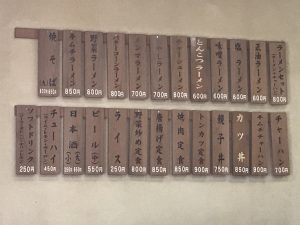 ラーメンセット
800円
正油ラーメン
600円
塩ラーメン
600円
味噌ラーメン
600円
とんこつラーメン
チャーシューメン
800円
もやしラーメン
700円
700円
バターコーンラーメン
800円
野菜ラーメン
800円
キムチラーメン
850円
焼そば
チャーハン
700円
キムチチャーハン
800円
カツ丼
850円
親子丼
750円
トンカツ定食
900円
焼肉定食
850円
唐揚げ定食
850円
野菜炒め定食
800円
ライス
250円
ビール(中)
550円
日本酒
チューハイ
450円
ソフトドリンク
250円